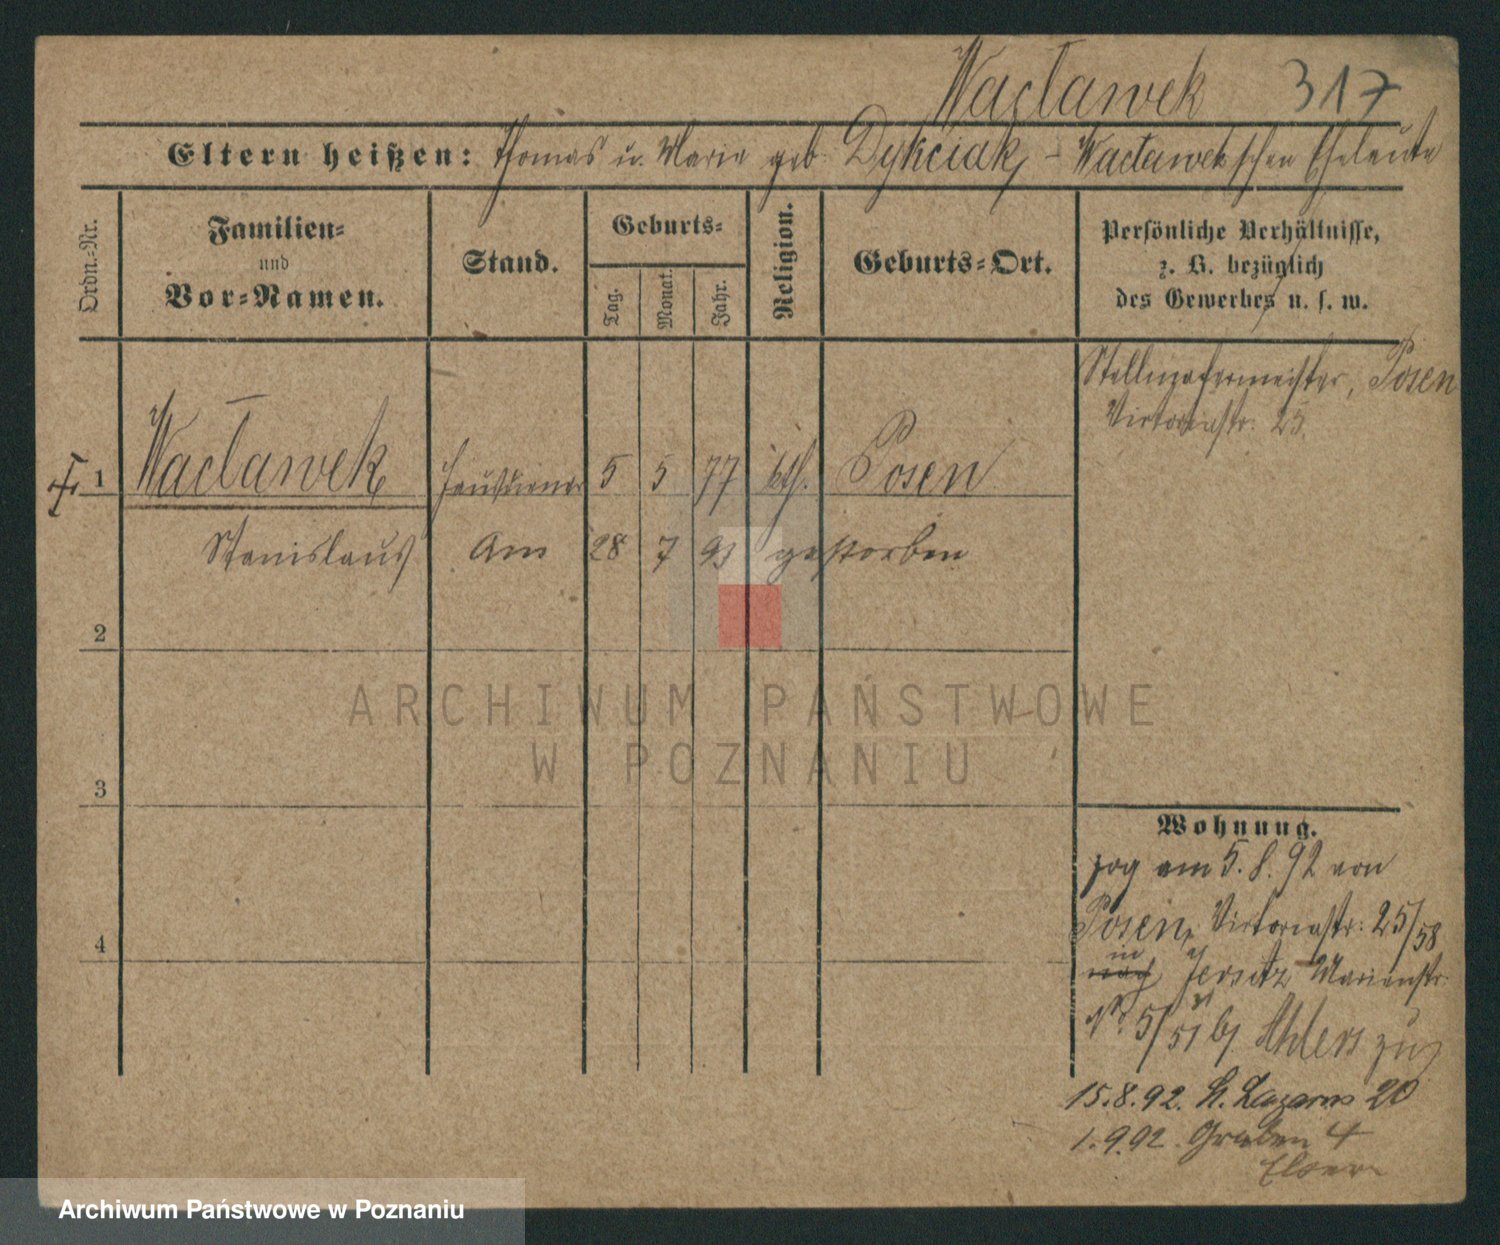 Wacławek 317
Eltern heißen: Thomas u. Maria geb. Dykciak - Wacławek'schen Eheleute
Ordn.-Nr.
Familien-
und
Vor-Namen.
Stand.
Geburts-
Tag.
Monat.
Jahr.
Religion.
Geburts-Ort.
Persönliche Verhältnisse,
z. B. bezüglich
des Gewerbes u. s. w.
Stellmachermeister, Posen
Victoriastr. 25.
1 Wacławek Hausdiener 5 5 77 kth. Posen
Stanislaus Am 28 7 93 gestorben
2
3
4
Wohnung.
zog am 5.8.92 von
Posen, Victoriastr. 25/58
in
nach Jersitz, Marienstr.
No 5/51 bj Ahlers zu
15.8.92. St. Lazarus 20
1.9.92. Graben 4
Eltern
ARCHIWUM PAŃSTWOWE
W POZNANIU
Archiwum Państwowe w Poznaniu